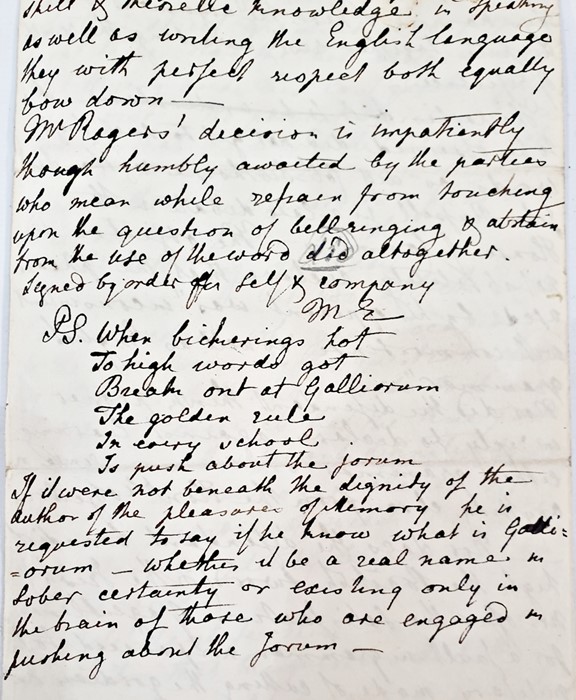 skill & theorelle knowledge in speaking
as well as writing the English language
they with perfect respect both equally
bow down —
Mr Rogers' decision is impatiently
though humbly awaited by the parties
who mean while refrain from touching
upon the question of bell ringing & abstain
from the use of the word did altogether.
Signed by order for self & company
M E
P.S. When bickerings hot
To high words got
Break out at Galliorum
The golden rule
In every school
Is push about the jorum
If it were not beneath the dignity of the
author of the pleasures of Memory he is
requested to say if he know what is Galli=
=orum — whether it be a real name in
sober certainty or existing only in
the brain of those who are engaged in
pushing about the Jorum —